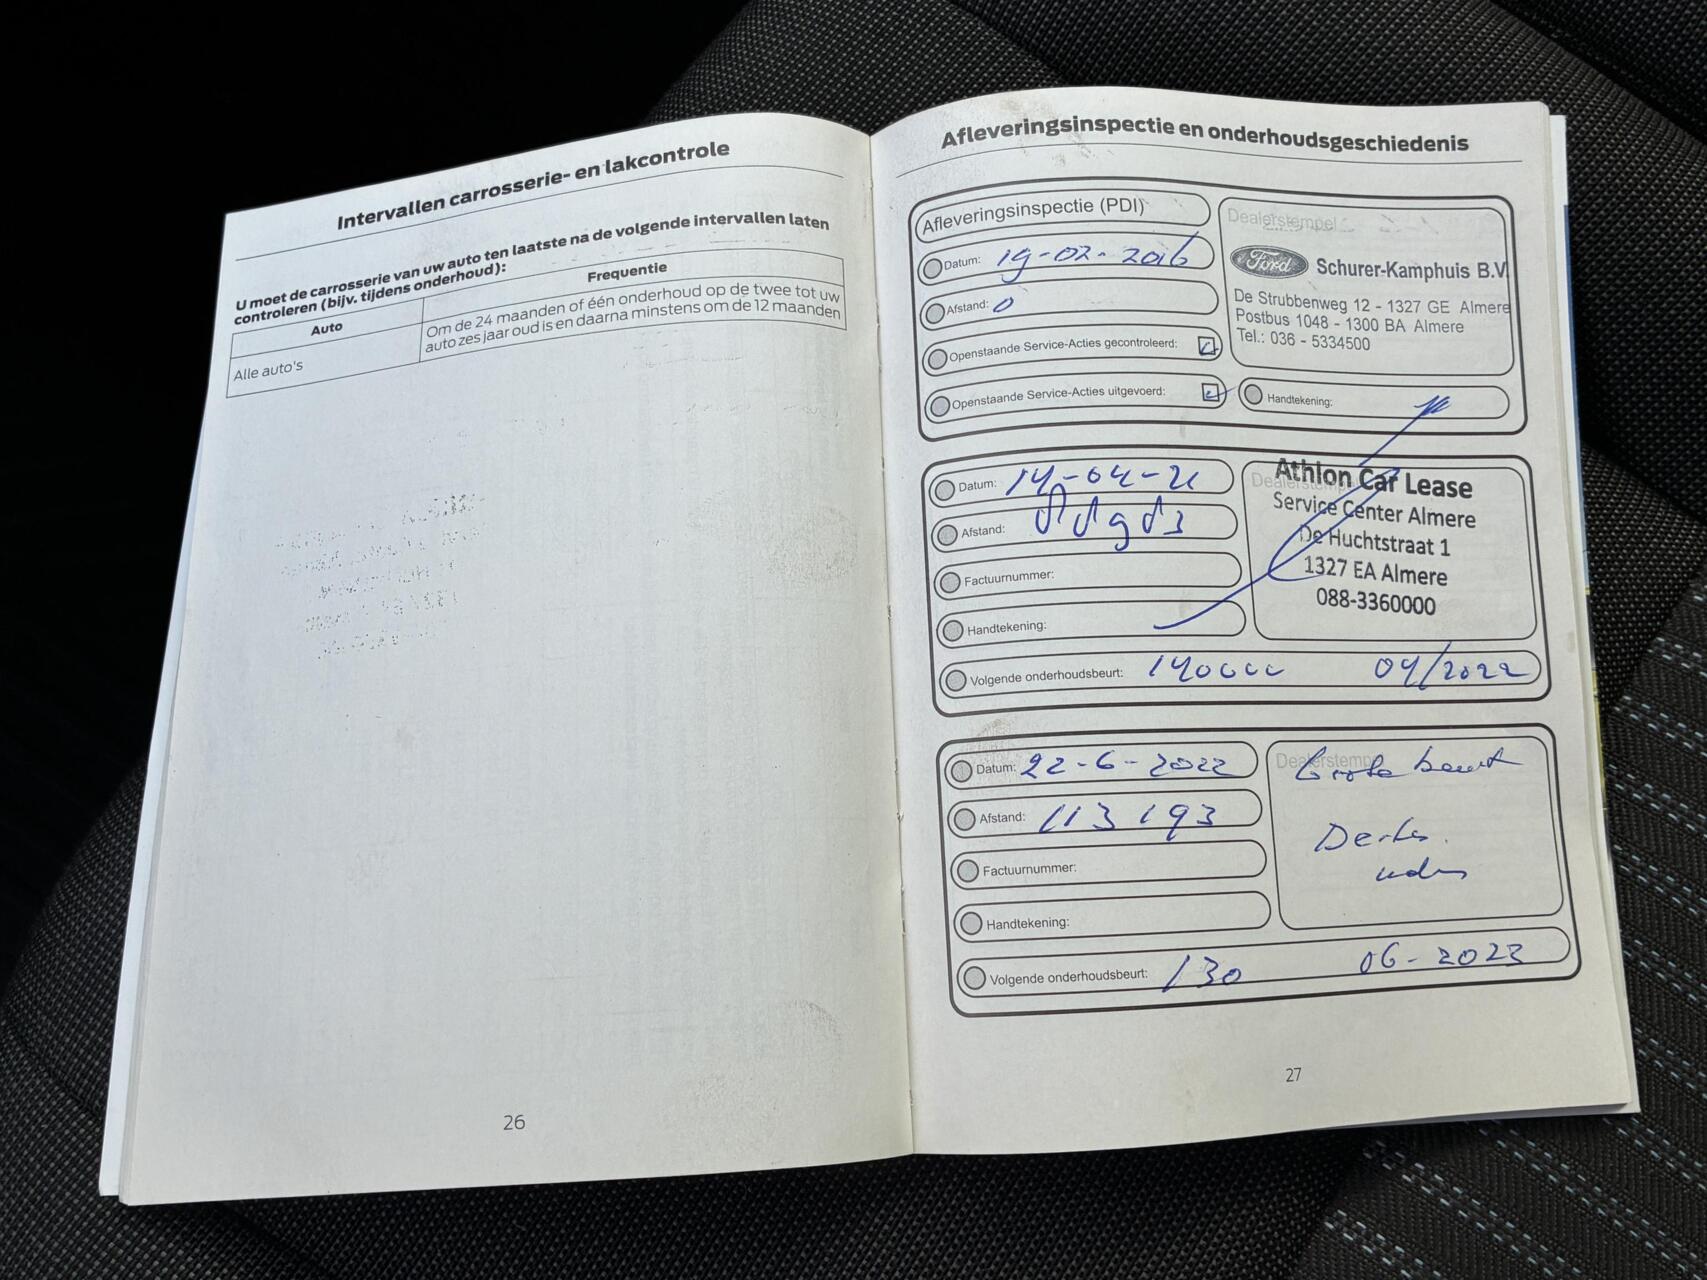 Intervallen carrosserie- en lakcontrole
U moet de carrosserie van uw auto ten laatste na de volgende intervallen laten
controleren (bijv. tijdens onderhoud):
Auto
Frequentie
Alle auto's
Om de 24 maanden of één onderhoud op de twee tot uw
auto zes jaar oud is en daarna minstens om de 12 maanden
26
Afleveringsinspectie en onderhoudsgeschiedenis
Afleveringsinspectie (PDI)
Datum: 19-02-2016
Afstand: 0
Openstaande Service-Acties gecontroleerd:
Openstaande Service-Acties uitgevoerd:
Dealerstempel
Ford Schurer-Kamphuis B.V.
De Strubbenweg 12 - 1327 GE Almere
Postbus 1048 - 1300 BA Almere
Tel.: 036 - 5334500
Handtekening:
Datum: 14-04-21
Afstand:
Factuurnummer:
Handtekening:
Dealerstempel
Athlon Car Lease
Service Center Almere
De Huchtstraat 1
1327 EA Almere
088-3360000
Volgende onderhoudsbeurt: 140000 04/2022
Datum: 22-6-2022
Afstand: 113193
Factuurnummer:
Handtekening:
Dealerstempel
Grote beurt
Volgende onderhoudsbeurt: 130 06-2023
27